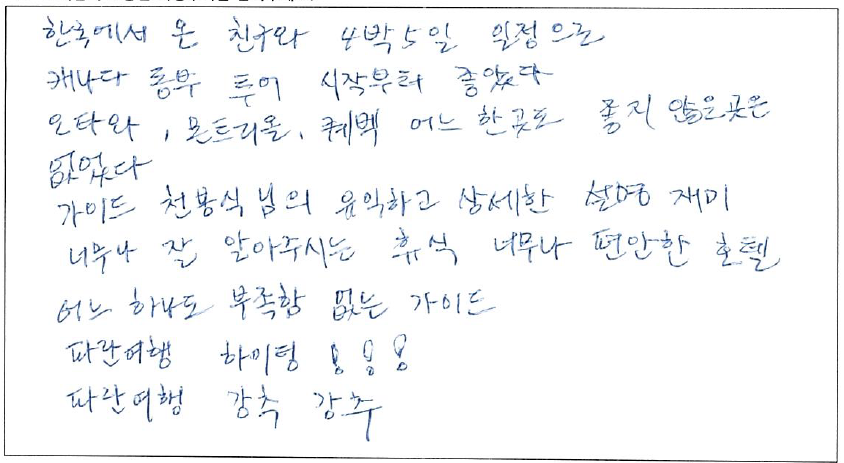 한국에서 온 친구와 4박5일 일정으로
캐나다 동부 투어 시작부터 좋았다
오타와, 몬트리올, 퀘벡 어느 한곳도 좋지 않은곳은
없었다
가이드 천봉식님의 유익하고 상세한 설명 재미
너무나 잘 알아주시는 휴식 너무나 편안한 호텔
어느 하나도 부족함 없는 가이드
파란여행 하이팅 !!!
파란여행 강축 강추